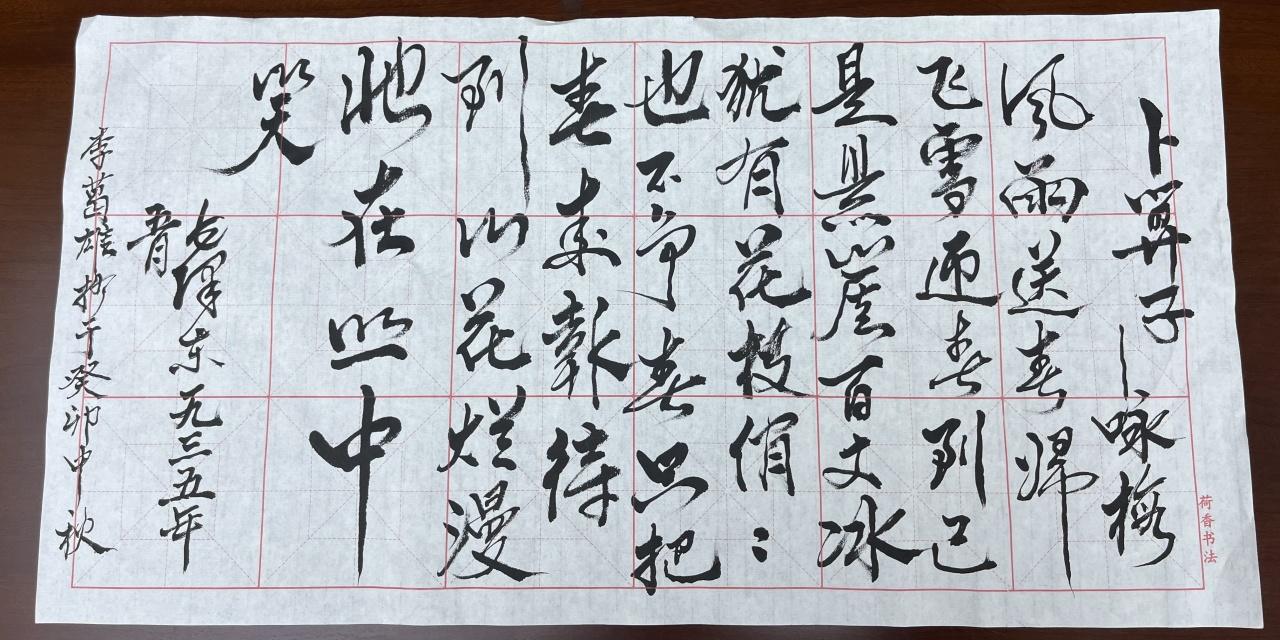 卜算子—咏梅
风雨送春归
飞雪迎春到已
是悬崖百丈冰
犹有花枝俏：
也不争春只把
春来報待
到山花烂漫
她在丛中
笑
泽东九三五年
李葛雄抄于癸卯中秋
荷香书法